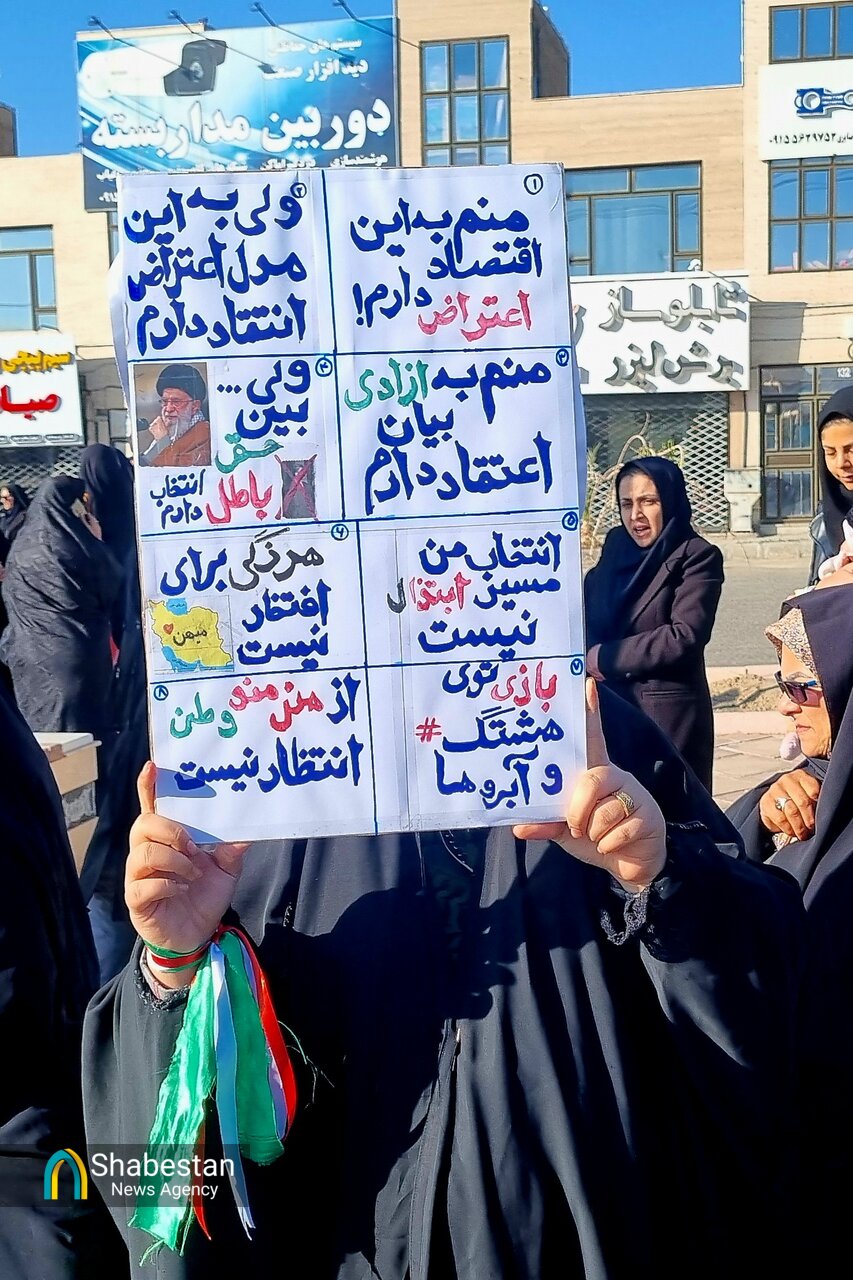 سیستم های حفاظتی
دیدافزار صنعت
دوربین مداربسته
۰۹۱۵ ۵۶۲۹۷۵۲
تابلوساز
برش لیزر
132
صبا
۱
منم به این
اقتصاد
اعتراض دارم!
۲
ولی به این
مدل اعتراض
انتقاد دارم
۳
منم به آزادی
بیان
اعتقاد دارم
۴
ولی...
بین
حق
باطل
انتخاب
دارم
۵
انتخاب من
مسیر ابتذال
نیست
۶
هرزگی برای
افتخار
نیست
میهن
۷
بازی توی
هشتگ #
و آبروها
۸
از هنر منو وطن
انتظار نیست
Shabestan
News Agency